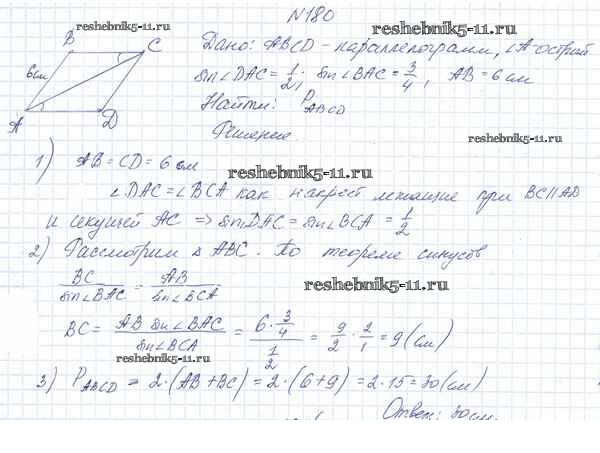 №180
reshebnik5-11.ru
reshebnik5-11.ru
B
C
6см
A
D
Дано: ABCD - параллелограмм, ∠A-острый
sin∠DAC = 1/2, sin∠BAC = 3/4, AB = 6 см
Найти: P ABCD
Решение.
reshebnik5-11.ru
1) AB = CD = 6 см
reshebnik5-11.ru
∠DAC = ∠BCA как накрест лежащие при BC || AD
и секущей AC => sin∠DAC = sin∠BCA = 1/2
2) Рассмотрим Δ ABC. По теореме синусов
BC/sin∠BAC = AB/sin∠BCA
reshebnik5-11.ru
BC = AB sin∠BAC/sin∠BCA = 6·3/4 / 1/2 = 9/2 · 2/1 = 9 (см)
reshebnik5-11.ru
3) P ABCD = 2·(AB+BC) = 2·(6+9) = 2·15 = 30 (см)
Ответ: 30см.